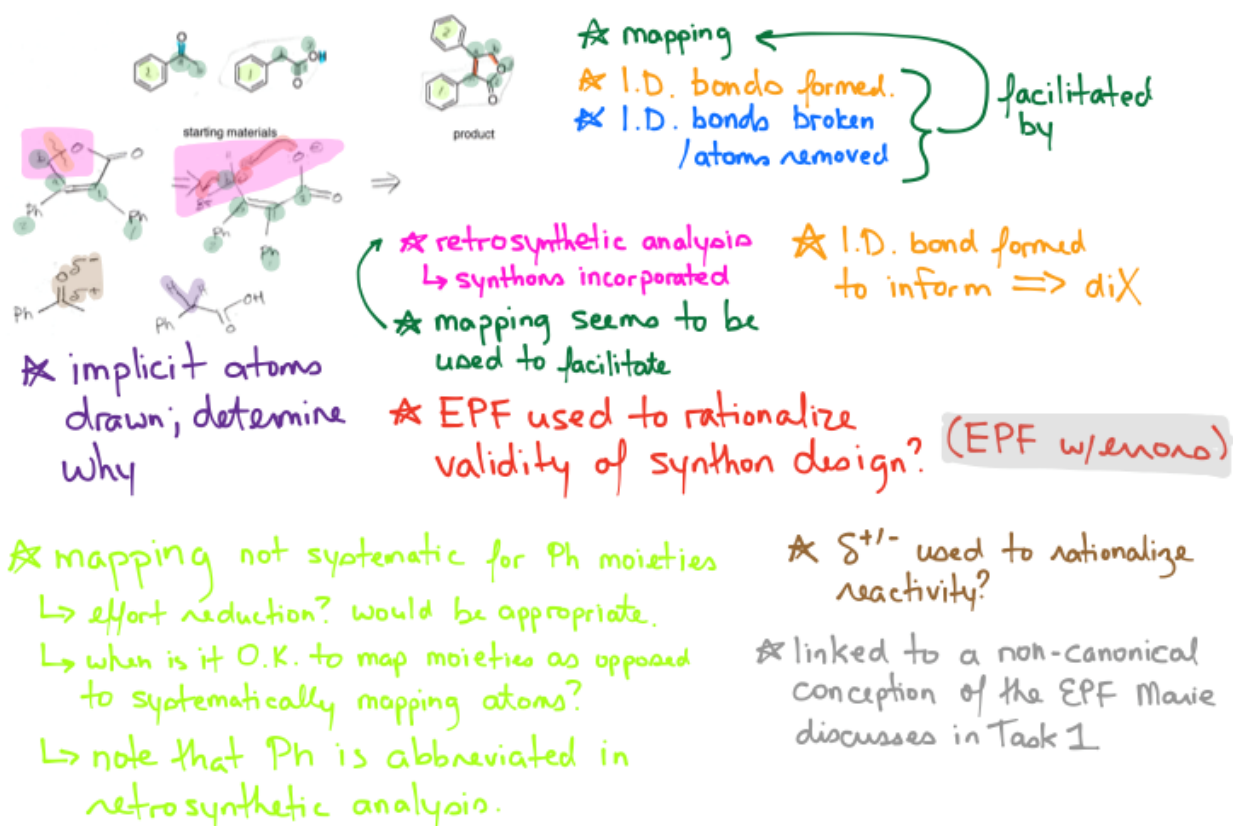 ☆ mapping
☆ I.D. bonds formed.
☆ I.D. bonds broken
/atoms removed
facilitated
by
O
OH
O
O
O
starting materials
product
O
O
Ph
Ph
⇒
O
O
Ph
Ph
⇒
☆ retrosynthetic analysis
↳ synthons incorporated
☆ mapping seems to be
used to facilitate
☆ I.D. bond formed
to inform ⇒ diX
O δ-
δ+
Ph
H H
OH
Ph
O
☆ implicit atoms
drawn; determine
why
☆ EPF used to rationalize
validity of synthon design?
(EPF w/errors)
☆ mapping not systematic for Ph moieties
↳ effort reduction? would be appropriate.
↳ when is it O.K. to map moieties as opposed
to systematically mapping atoms?
↳ note that Ph is abbreviated in
retrosynthetic analysis.
☆ δ+/- used to rationalize
reactivity?
☆ linked to a non-canonical
conception of the EPF Marie
discusses in Task 1